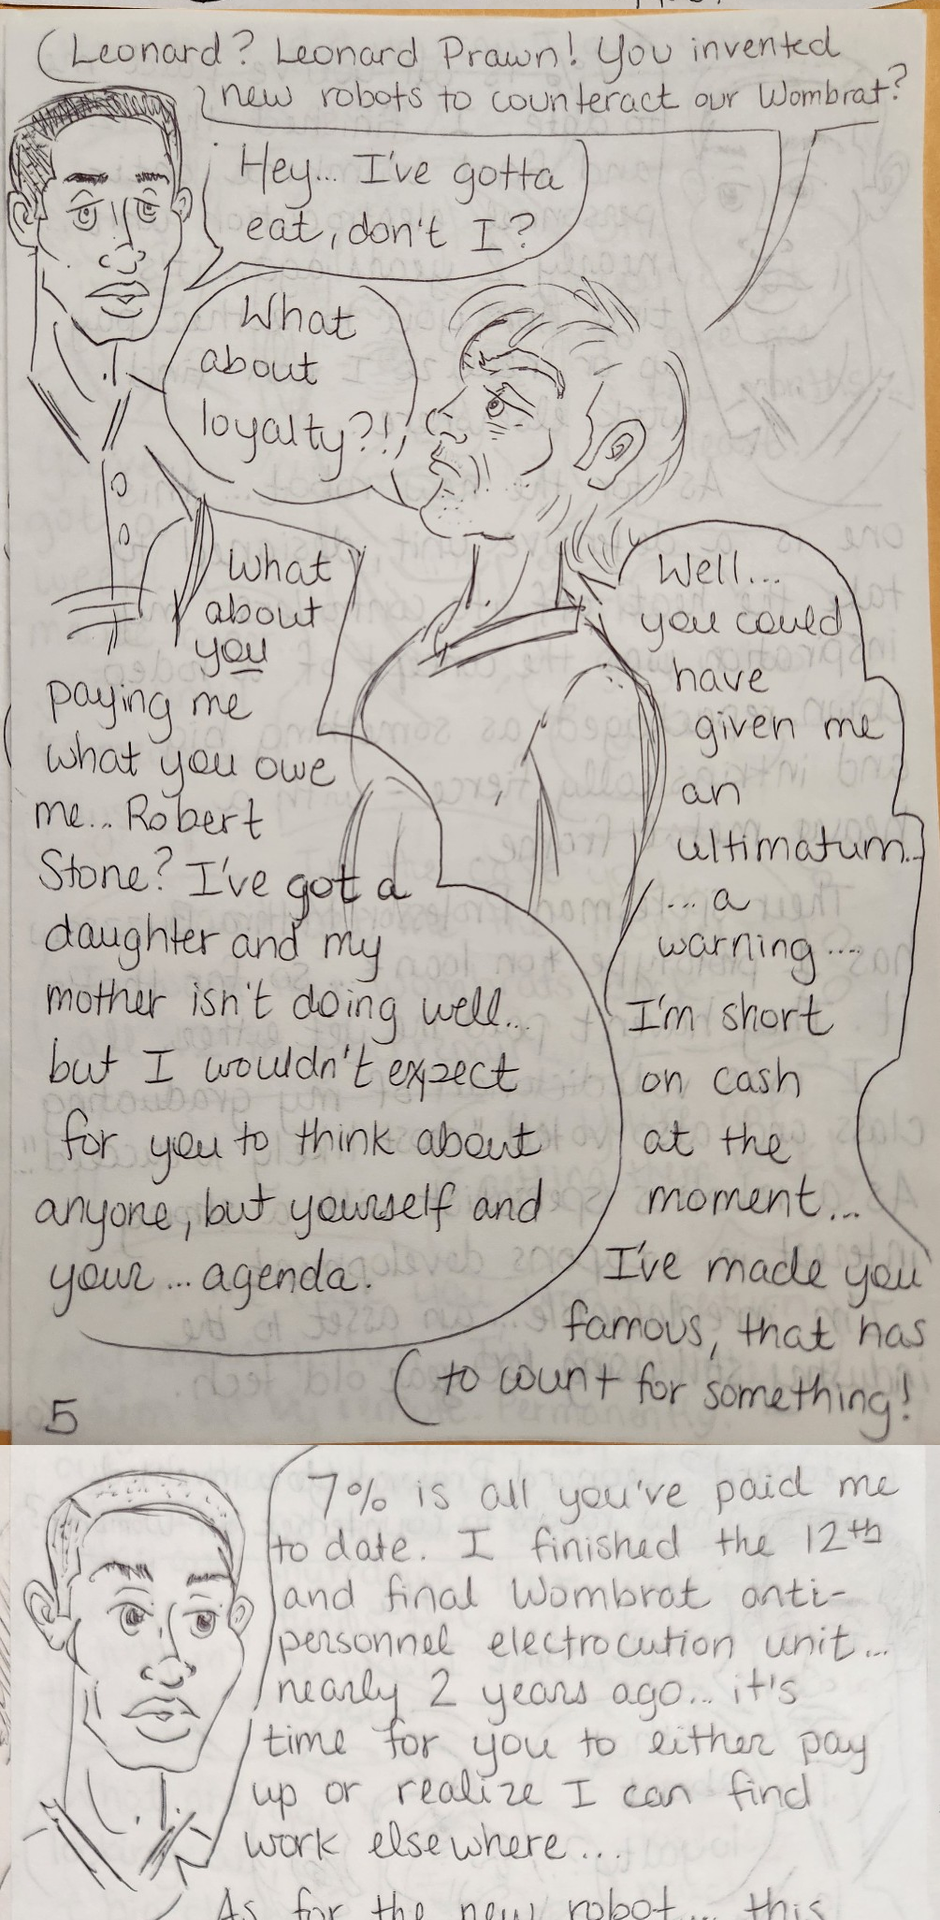 Leonard? Leonard Prawn! You invented
new robots to counteract our Wombrat?
Hey... I've gotta
eat, don't I?
What
about
loyalty?!
What
about
you
paying me
what you owe
me... Robert
Stone? I've got a
daughter and my
mother isn't doing well...
but I wouldn't expect
for you to think about
anyone, but yourself and
your... agenda.
Well...
you could
have
given me
an
ultimatum...
...a
warning....
I'm short
on cash
at the
moment...
I've made you
famous, that has
to count for something!
5
7% is all you've paid me
to date. I finished the 12th
and final Wombrat anti-
personnel electrocution unit...
nearly 2 years ago... it's
time for you to either pay
up or realize I can find
work elsewhere...
As for the new robot... this